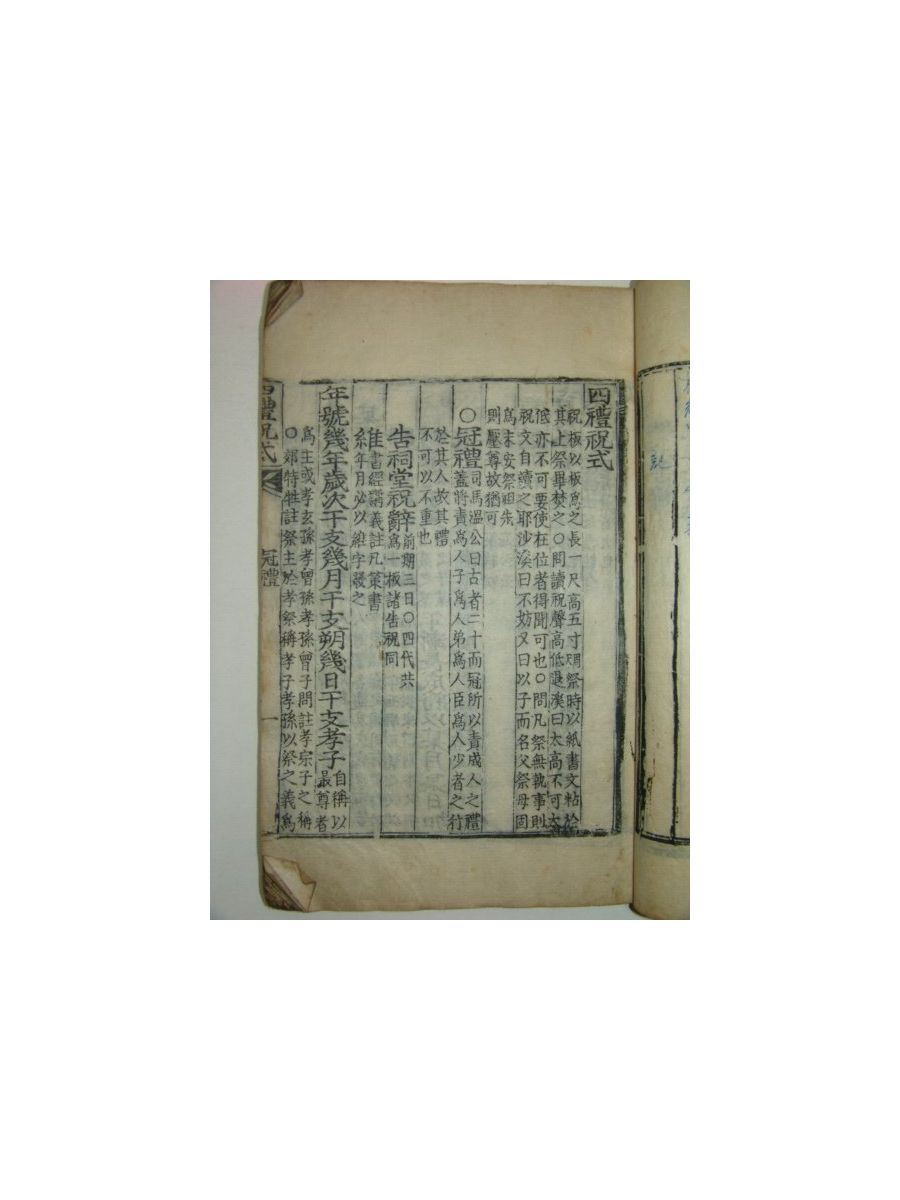 四禮祝式
祝板以板爲之長一尺高五寸臨祭時以紙書文粘於
其上祭畢焚之○問讀祝聲高低退溪曰太高不可太
低亦不可要使在位者得聞可也○問凡祭無執事則
祝文自讀之耶沙溪曰不妨又曰以子而名父祭母固
爲未安祭祖先
則壓尊故猶可
○冠禮司馬溫公曰古者二十而冠所以責成人之禮
蓋將責爲人子爲人弟爲人臣爲人少者之行
於其人故其禮
不可以不重也
告祠堂祝辭前期三日○四代共
爲一板諸告祝同
維書經講義註凡策書
紀年月必以維字發之
年號幾年歲次干支幾月干支朔幾日干支孝子自稱以
最尊者
爲主或孝玄孫孝曾孫孝孫曾子問註孝宗子之稱
○郊特牲註祭主於孝祭稱孝子孝孫以祭之義爲
四禮祝式
冠禮
一